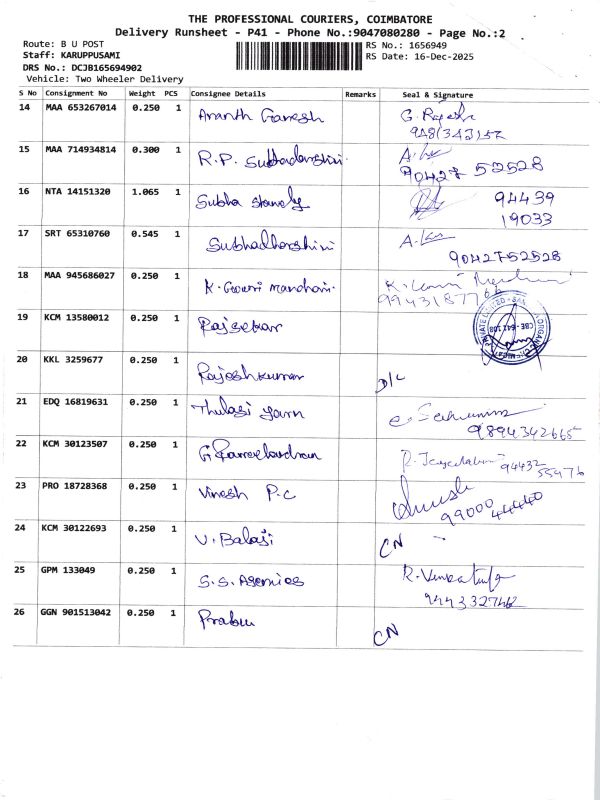 THE PROFESSIONAL COURIERS, COIMBATORE
Delivery Runsheet - P41 - Phone No.:9047080280 - Page No.:2
Route: B U POST
RS No.: 1656949
Staff: KARUPPUSAMI
RS Date: 16-Dec-2025
DRS No.: DCJB165694902
Vehicle: Two Wheeler Delivery
S No Consignment No Weight PCS Consignee Details Remarks Seal & Signature
14 MAA 653267014 0.250 1 Ananth Ganesh G. Rajesh
15 MAA 714934814 0.300 1 R.P. Subhadarshini
90427 52528
16 NTA 14151320 1.065 1 Subha Stanely 94439
19033
17 SRT 65310760 0.545 1 Subhadharshini
9042752528
18 MAA 945686027 0.250 1 K. Gowri Manohari
19 KCM 13580012 0.250 1 Rajsekar
20 KKL 3259677 0.250 1 Rajeshkumar D/L
21 EDQ 16819631 0.250 1 Thulasi yarn
9894342665
22 KCM 30123507 0.250 1 G
94432
55976
23 PRO 18728368 0.250 1 Vinesh P.C
99000 44440
24 KCM 30122693 0.250 1 V. Balaji CN
25 GPM 133049 0.250 1 S.S. Agencies
26 GGN 901513042 0.250 1 Prabu CN